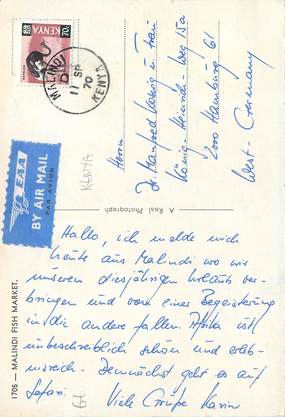 KENYA
70c
MALINDI
11 SP
70
KENYA
EAA
BY AIR MAIL
PAR AVION
KENYA
A Real Photograph
1706 — MALINDI FISH MARKET.
Herrn
Dr. Manfred u. Frau
König-Heinrich-Weg 15a
2000 Hamburg 61
West-Germany
Hallo, ich melde mich
heute aus Malindi wo wir
unseren diesjährigen Urlaub ver-
bringen und von einer Begeisterung
in die andere fallen. Afrika ist
unbeschreiblich schön und erleb-
nisreich. Demnächst geht es auf
Safari. Viele Grüße Karin
61